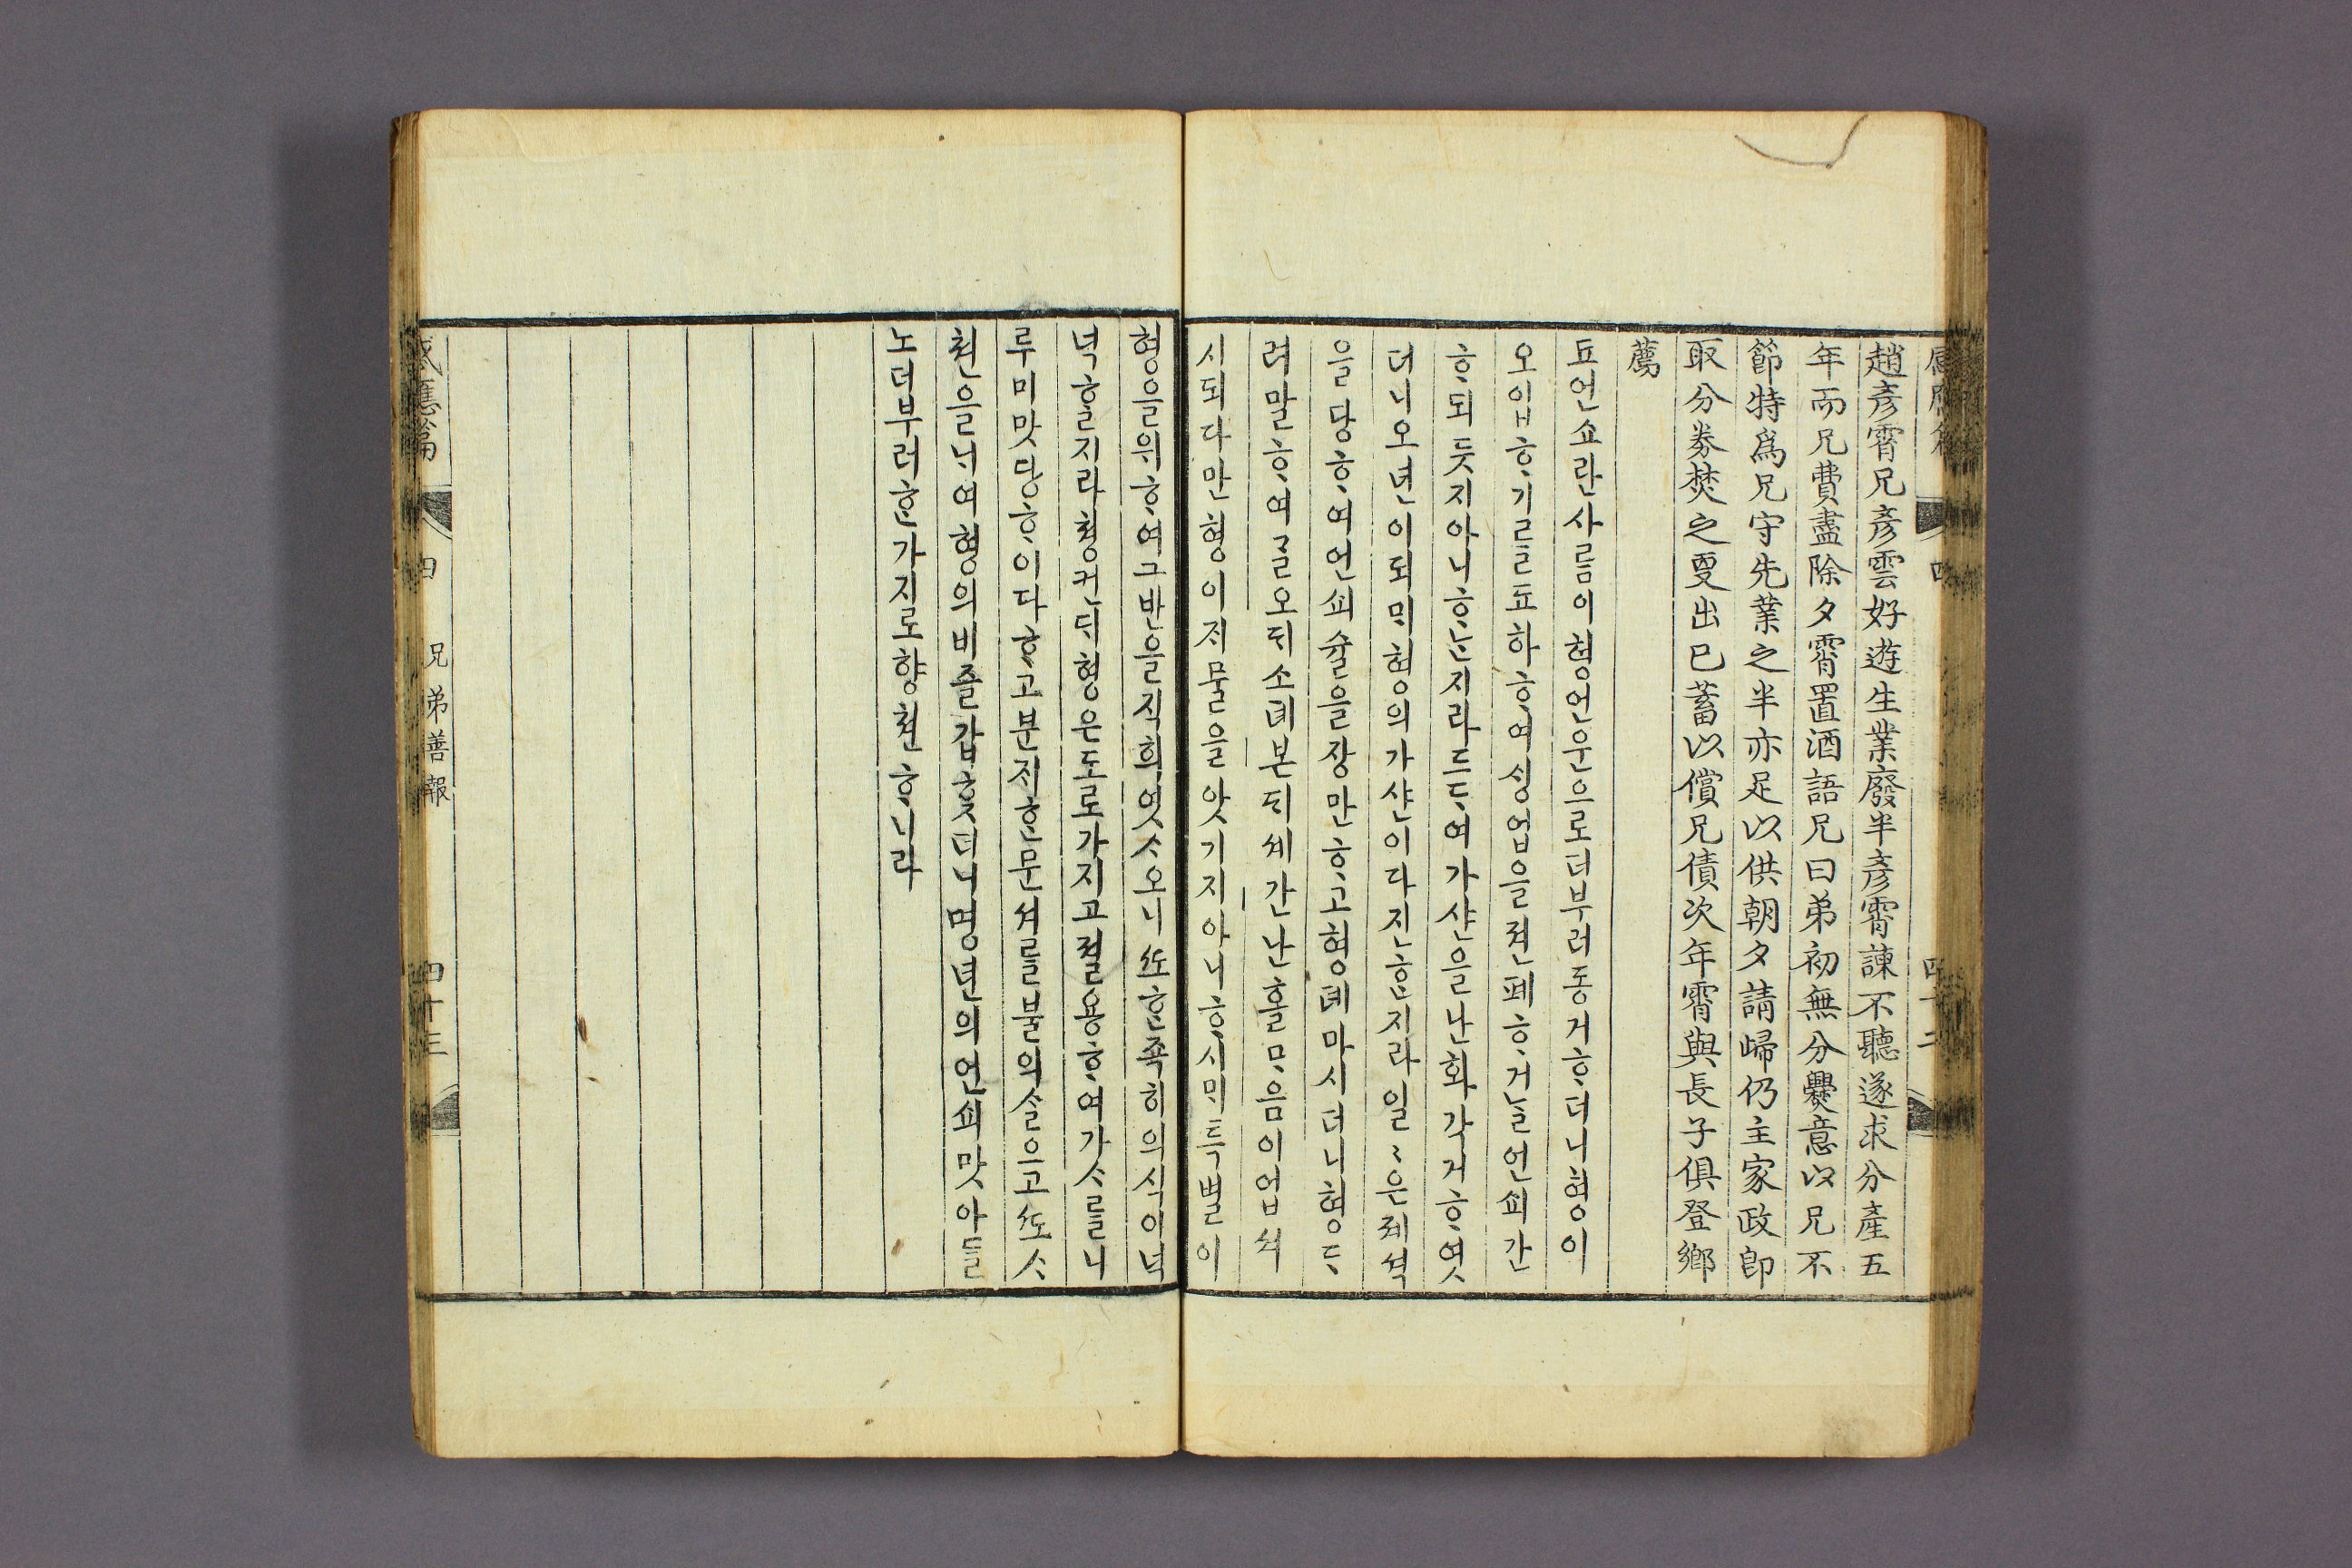 趙彥霄兄彥雲好遊生業廢半彥霄諫不聽遂求分產五
年而兄費盡除夕霄置酒語兄曰弟初無分爨意以兄不
節特爲兄守先業之半亦足以供朝夕請歸仍主家政卽
取分券焚之更出已蓄以償兄債次年霄與長子俱登鄉
薦
됴언쇼란사ᄅᆞᆷ이형언운으로더부러동거ᄒᆞ더니형이
오입ᄒᆞ기ᄅᆞᆯ됴하ᄒᆞ여싱업을젼폐ᄒᆞ거ᄂᆞᆯ언쇠간
ᄒᆞ되듯지아니ᄒᆞᄂᆞᆫ지라드ᄃᆞ여가샨을난화각거ᄒᆞ엿
더니오년이되ᄆᆡ형의가샨이다진ᄒᆞᆫ지라일〻은졔셕
을당ᄒᆞ여언쇠슐을장만ᄒᆞ고형뎨마시더니형ᄃᆞ
려말ᄒᆞ여ᄀᆞᆯ오ᄃᆡ소뎨본ᄃᆡ셰간난홀ᄆᆞ음이업셔
시되다만형이ᄌᆡ물을앗기지아니ᄒᆞ시ᄆᆡ특별이
형을위ᄒᆞ여그반을직희엿ᄉᆞ오니ᄯᅩᄒᆞᆫ죡히의식이넉
넉ᄒᆞᆯ지라쳥컨ᄃᆡ형은도로가지고졀용ᄒᆞ여가ᄉᆞ를니
루미맛당ᄒᆞ이다ᄒᆞ고분ᄌᆡᄒᆞᆫ문셔를불의솔으고ᄯᅩᄉᆞ
쳔을ᄂᆡ여형의비즐갑ᄒᆞᆺ더니명년의언쇠맛아들
노더부러ᄒᆞᆫ가지로향쳔ᄒᆞ니라
感應篇
四
兄弟善報
四十三